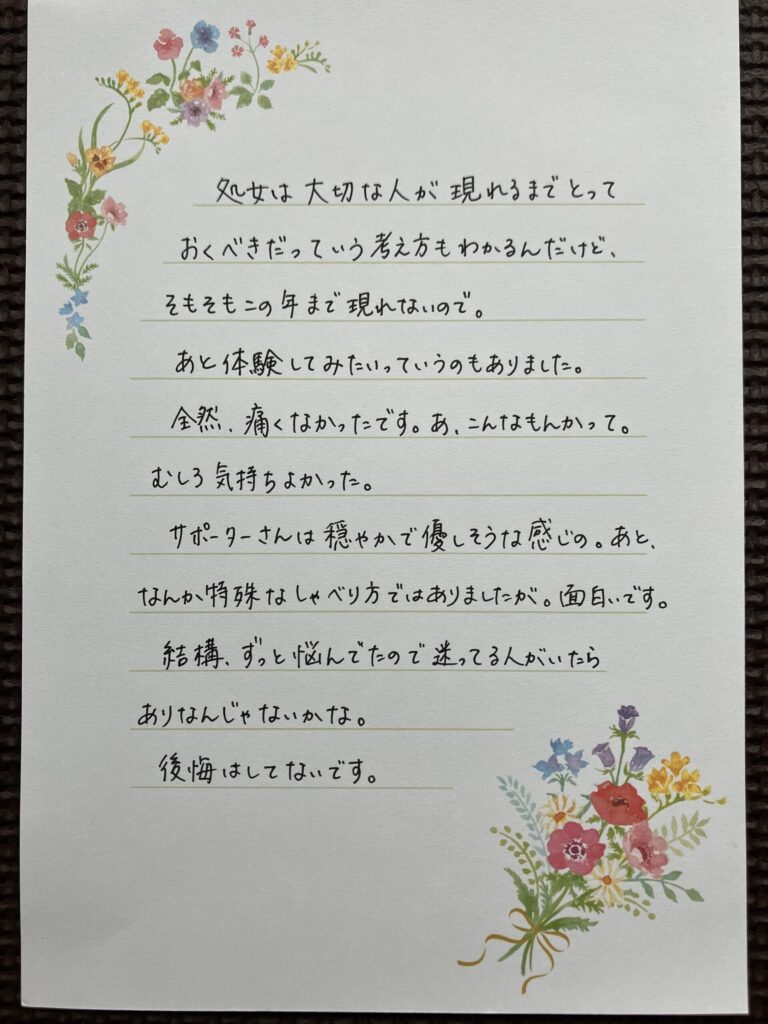 処女は大切な人が現れるまでとって
おくべきだっていう考え方もわかるんだけど、
そもそもこの年まで現れないので。
あと体験してみたいっていうのもありました。
全然、痛くなかったです。あ、こんなもんかって。
むしろ気持ちよかった。
サポーターさんは穏やかで優しそうな感じの。あと、
なんか特殊なしゃべり方ではありましたが。面白いです。
結構、ずっと悩んでたので迷ってる人がいたら
ありなんじゃないかな。
後悔はしてないです。